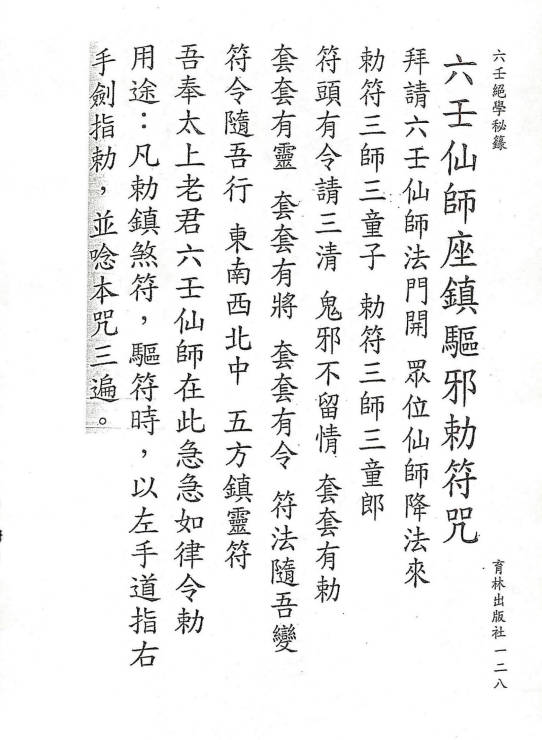 六壬絕學秘籙
六壬仙師座鎮驅邪勅符咒
拜請六壬仙師法門開 眾位仙師降法來
勅符三師三童子 勅符三師三童郎
符頭有令請三清 鬼邪不留情 套套有勅
套套有靈 套套有將 套套有令 符法隨吾變
符令隨吾行 東南西北中 五方鎮靈符
吾奉太上老君六壬仙師在此急急如律令勅
用途：凡勅鎮煞符，驅符時，以左手道指右
手劍指勅，並唸本咒三遍。
育林出版社 一二八